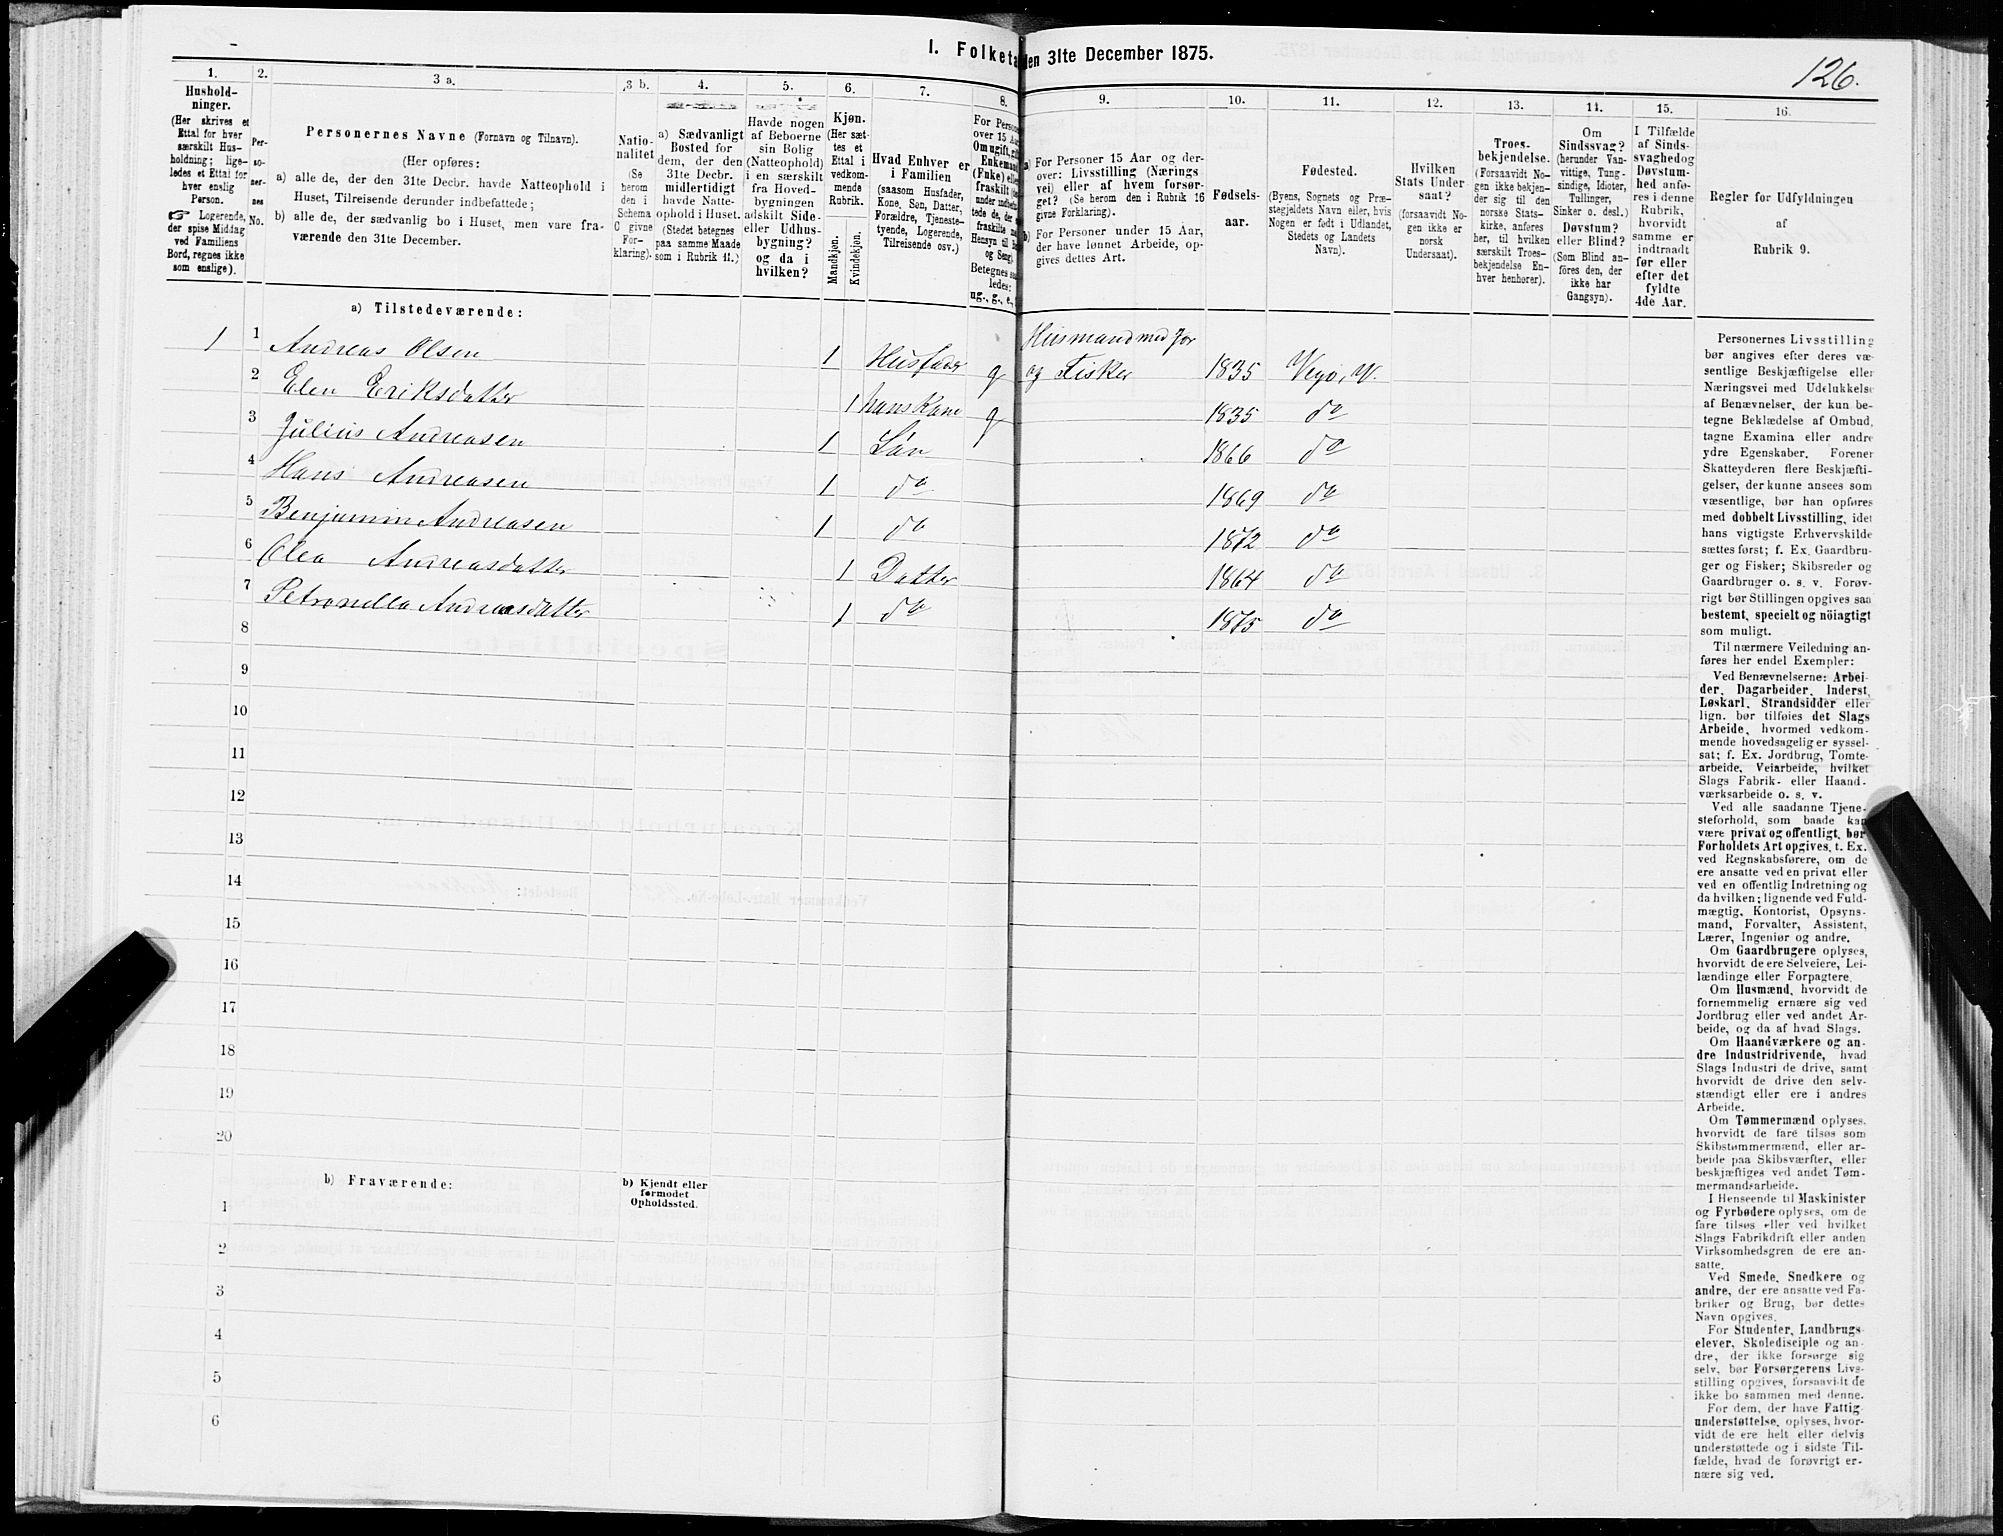 I. Folketæ
den 31te December 1875.
126.
1. 2. 3 a. 3 b. 4. 5. 6. 7. 8. 9. 10. 11. 12. 13. 14. 15. 16.
Hushold-
ninger.
(Her skrives et
Ettal for hver
særskilt Hus-
holdning; lige-
ledes et Ettal for
hver enslig
Person.
☞ Logerende,
der spise Middag
ved Familiens
Bord, regnes ikke
som enslige).
Per-
so-
ner-
nes
No.
Personernes Navne (Fornavn og Tilnavn).
(Her opføres:
a) alle de, der den 31te Decbr. havde Natteophold i
Huset, Tilreisende derunder indbefattede;
b) alle de, der sædvanlig bo i Huset, men vare fra-
værende den 31te December.
Natio-
nalitet
(Se
herom
den i
Schema
C givne
For-
klaring).
a) Sædvanligt
Bosted for
dem, der den
31te Decbr.
midlertidigt
havde Natte-
ophold i Huset.
(Stedet betegnes
paa samme Maade
som i Rubrik 11.)
Havde nogen
af Beboerne
sin Bolig
(Natteophold)
i en særskilt
fra Hoved-
bygningen
adskilt Side-
eller Udhus-
bygning?
og da i
hvilken?
Kjøn.
(Her sæt-
tes et
Ettal i
vedkom-
mende
Rubrik.
Mandkjøn.
Kvindekjøn.
Hvad Enhver er
i Familien
(saasom Husfader,
Kone, Søn, Datter,
Forældre, Tjeneste-
tyende, Logerende,
Tilreisende osv.)
For Persone
over 15 Aa
Om ugift, gift
Enkemand
(Enke) elle
fraskilt
Betegnes saa
ledes:
ug., g., e.,
a) For Personer 15 Aar og der-
over: Livsstilling (Nærings
vei) eller af hvem forsør-
get? (Se herom den i Rubrik 16
givne Forklaring).
b) For Personer under 15 Aar,
der have lønnet Arbeide, op-
gives dettes Art.
Fødsels-
aar.
Fødested.
(Byens, Sognets og Præ-
stegjeldets Navn eller, hvis
Nogen er født i Udlandet,
Stedets og Landets
Navn).
Hvilken
Stats Under
saat?
(forsaavidt No-
gen ikke er
norsk
Undersaat).
Troes-
bekjendelse.
(Forsaavidt No-
gen ikke bekjen-
der sig til den
norske Stats-
kirke, anføres
her, til hvilken
særskilt Troes-
bekjendelse En-
hver henhører).
Om
Sindssvag?
(herunder Van-
vittige, Tung-
sindige, Idioter,
Tullinger,
Sinker o. desl.)
Døvstum?
eller Blind?
(Som Blind an-
føres den, der
ikke har
Gangsyn).
I Tilfælde
af Sinds-
svaghed og
Døvstum-
hed anfø-
res i denne
Rubrik,
hvorvidt
samme er
indtraadt
før eller
efter det
fyldte
4de Aar.
Regler for Udfyldningen
af
Rubrik 9.
a) Tilstedeværende:
Husmand med Jor
1 1 Andreas Olsen 1 Husfader g og Fisker 1835 Vegø, V.
2 Elen Eriksdatter 1 hans Kone g 1835 do
3 Julius Andreasen 1 Søn 1866 do
4 Hans Andreasen 1 do 1869 do
5 Benjamin Andreasen 1 do 1872 do
6 Olea Andreasdatter 1 Datter 1864 do
7 Petronella Andreasdatter 1 do 1875 do
8
9
10
11
12
13
14
15
16
17
18
19
20
b) Fraværende:
b) Kjendt eller
formodet
Opholdssted.
1
2
3
4
5
6
Personernes Livsstilling
bør angives efter deres væ-
sentlige Beskjæftigelse eller
Næringsvei med Udelukkelse
af Benævnelser, der kun be-
tegne Beklædelse af Ombud,
tagne Examina eller andre
ydre Egenskaber. Forener
Skatteyderen flere Beskjæfti-
gelser, der kunne ansees som
væsentlige, bør han opføres
med dobbelt Livsstilling, idet
hans vigtigste Erhvervskilde
sættes først; f. Ex. Gaardbru-
ger og Fisker; Skibsreder og
Gaardbruger o. s. v. Forøv-
rigt bør Stillingen opgives saa
bestemt, specielt og nöiagtigt
som muligt.
Til nærmere Veiledning an-
føres her endel Exempler:
Ved Benævnelserne: Arbei-
der, Dagarbeider, Inderst,
Løskarl, Strandsidder eller
lign. bør tilføies det Slags
Arbeide, hvormed vedkom-
mende hovedsagelig er syssel-
sat; f. Ex. Jordbrug, Tomte-
arbeide, Veiarbeide, hvilket
Slags Fabrik- eller Haand-
værksarbeide o. s. v.
Ved alle saadanne Tjene-
steforhold, som baade kan
være privat og offentligt, bør
Forholdets Art opgives, t. Ex.
ved Regnskabsførere, om de
ere ansatte ved en privat eller
ved en offentlig Indretning og
da hvilken; lignende ved Fuld-
mægtig, Kontorist, Opsyns-
mand, Forvalter, Assistent,
Lærer, Ingeniør og andre.
Om Gaardbrugere oplyses,
hvorvidt de ere Selveiere, Lei-
lændinge eller Forpagtere.
Om Husmænd, hvorvidt de
fornemmelig ernære sig ved
Jordbrug eller ved andet Ar-
beide, og da af hvad Slags.
Om Haandværkere og an-
dre Industridrivende, hvad
Slags Industri de drive, samt
hvorvidt de drive den selv-
stændigt eller ere i andres
Arbeide.
Om Tømmermænd oplyses,
hvorvidt de fare tilsøs som
Skibstømmermænd, eller ar-
beide paa Skibsværfter, eller
beskjæftiges ved andet Tøm-
mermandsarbeide.
I Henseende til Maskinister
og Fyrbødere oplyses, om de
fare tilsøs eller ved hvilket
Slags Fabrikdrift eller anden
Virksomhedsgren de ere an-
satte.
Ved Smede, Snedkere og
andre, der ere ansatte ved Fa-
briker og Brug, bør dettes
Navn opgives.
For Studenter, Landbrugs-
elever, Skoledisciple og an-
dre, der ikke forsørge sig
selv, bør Forsørgerens Livs-
stilling opgives, forsaavidt de
ikke bo sammen med denne.
For dem, der have Fattig-
understøttelse, oplyses, hvor-
vidt de ere helt eller delvis
understøttede og i sidste Til-
fælde, hvad de forøvrigt er-
nære sig ved.